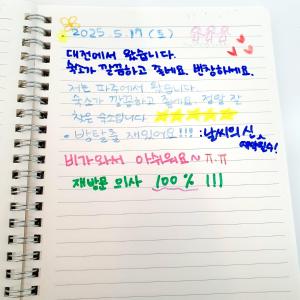 2025. 5. 17 (토)
대전에서 왔습니다.
숙소가 깔끔하고 좋네요. 번창하세요.
저는 파주에서 왔습니다
숙소가 깔끔하고 좋네요. 정말 잘
찾은 숙소입니다
• 방탈출 재밌어요!!! : 날씨의 신
비가와서 아쉬워요~ ㅠ.ㅠ
재방문 의사 100% !!!